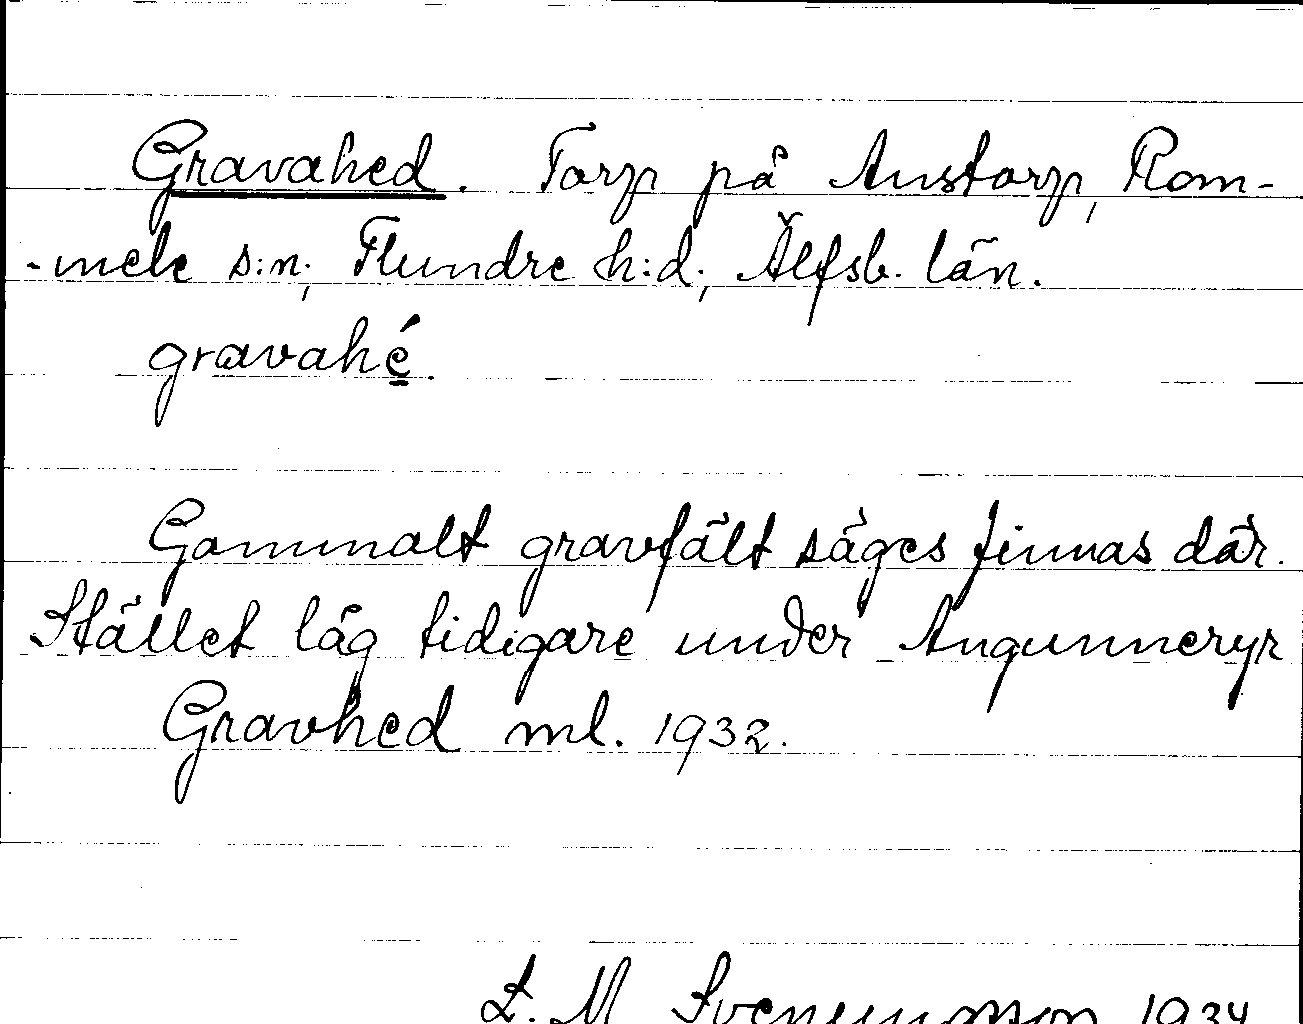 Gravahed. Torp på Anstorp, Rom-
-mele s:n, Flundre h:d, Älfsb. län.
gravahé.
Gammalt gravfält säges finnas där.
Stället låg tidigare under Angunneryr
Gravhed ml. 1932.
1934